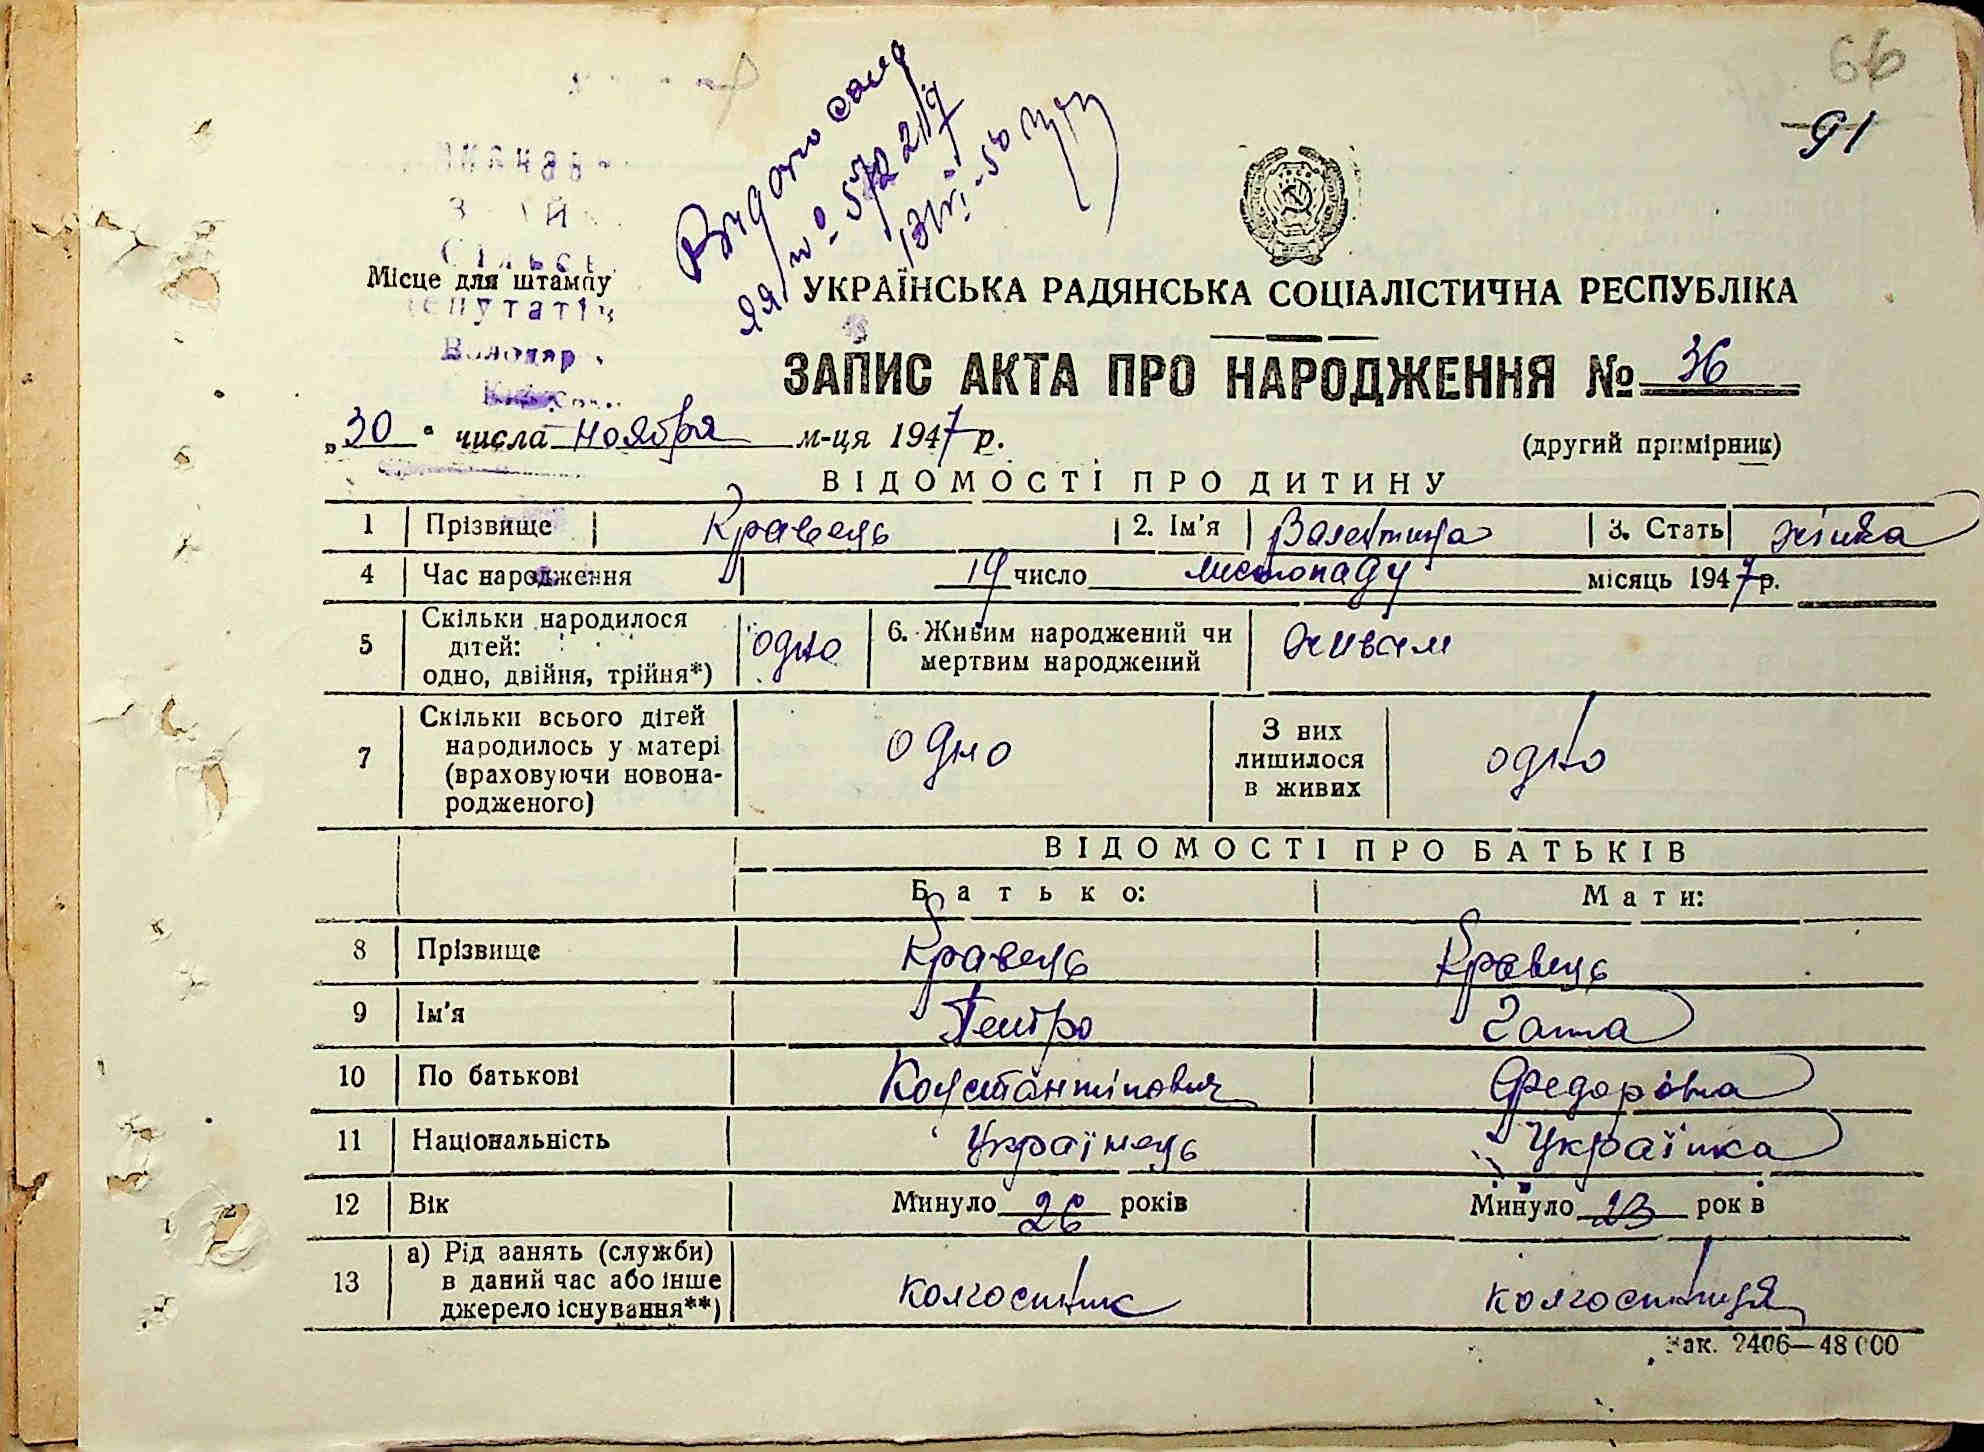 66
91
Видано
ЯЯ № 572217
Місце для штампу
УКРАЇНСЬКА РАДЯНСЬКА СОЦІАЛІСТИЧНА РЕСПУБЛІКА
ЗАПИС АКТА ПРО НАРОДЖЕННЯ № 36
„30" числа ноября м-ця 1947 р.
(другий примірник)
ВІДОМОСТІ ПРО ДИТИНУ
1 Прізвище Кравець 2. Ім'я Валентина 3. Стать жінка
4 Час народження 19 число листопаду місяць 1947 р.
5 Скільки народилося дітей: одно, двійня, трійня*) одно 6. Живим народжений чи мертвим народжений живим
7 Скільки всього дітей народилось у матері (враховуючи новона-родженого) одно З них лишилося в живих одно
ВІДОМОСТІ ПРО БАТЬКІВ
Батько: Мати:
8 Прізвище Кравець Кравець
9 Ім'я Петро Гапа
10 По батькові Константінович Федорівна
11 Національність Українець Українка
12 Вік Минуло 26 років Минуло 23 рок в
13 а) Рід занять (служби) в даний час або інше джерело існування**) колгоспник колгоспниця
Зак. 2406—48 000